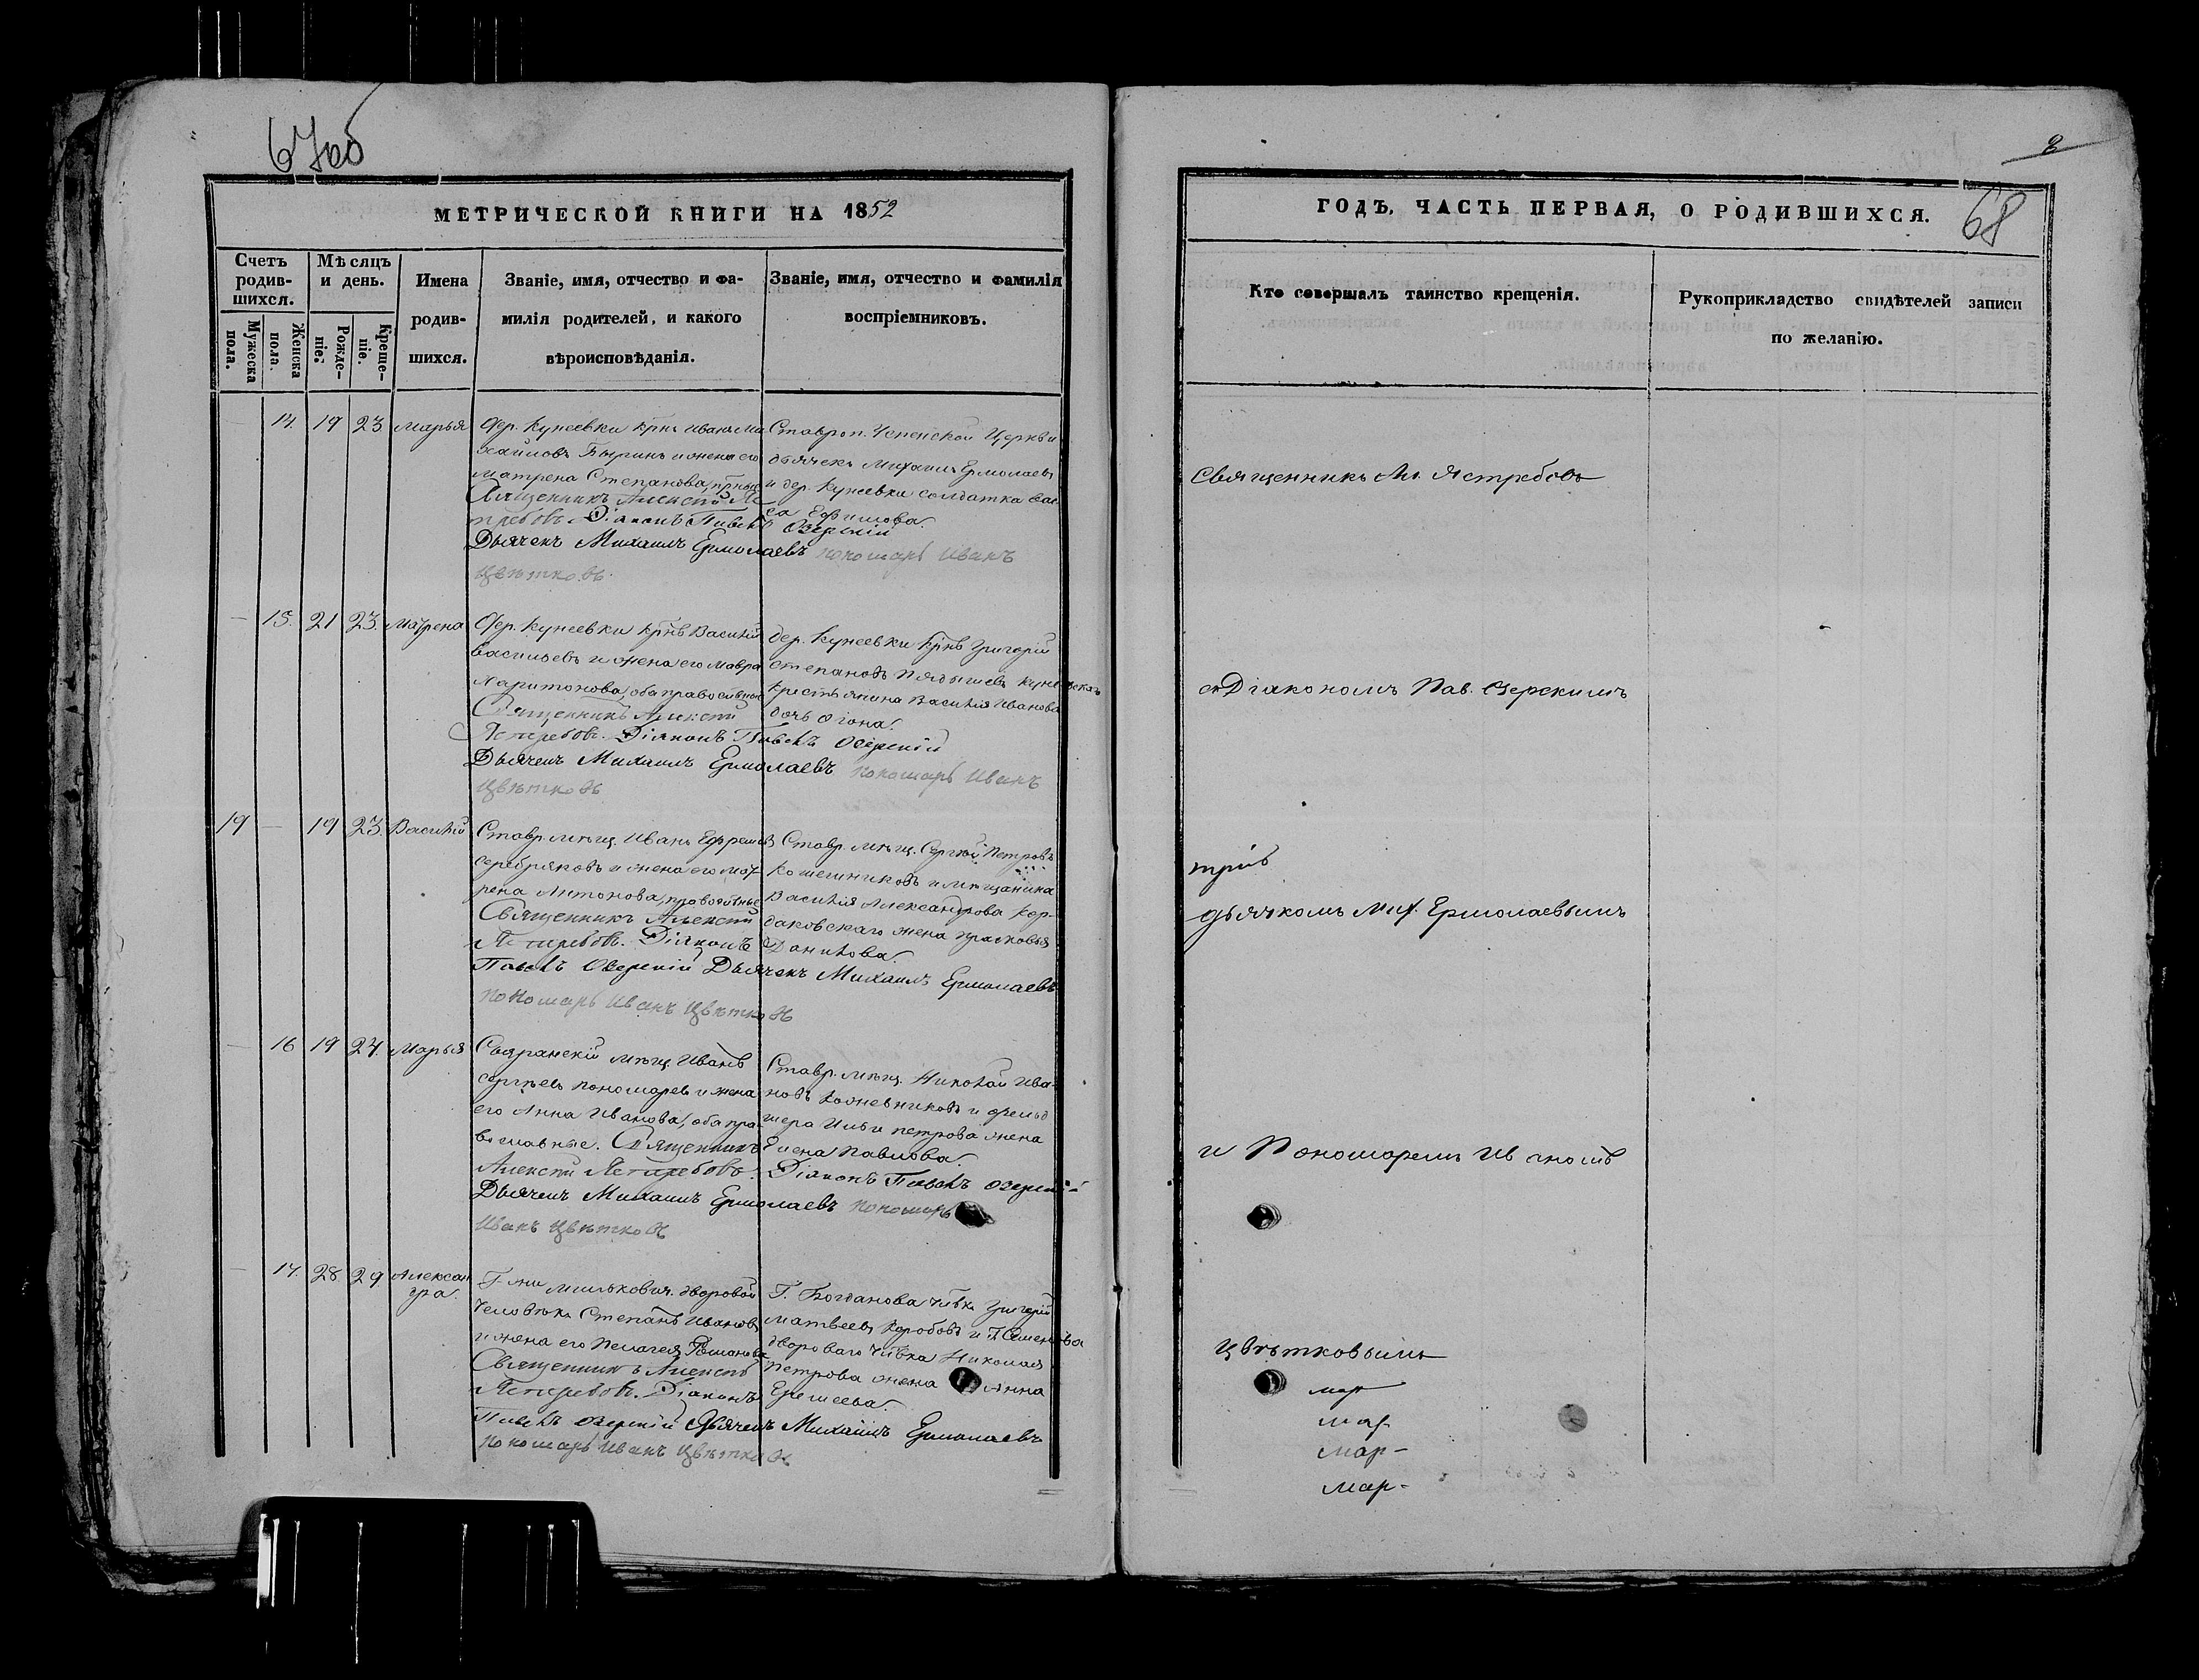 67об
МЕТРИЧЕСКОЙ КНИГИ НА 1852
Счетъ родив-шихся.
Мѣсяцъ и день.
Имена родив-шихся.
Званіе, имя, отчество и фа-
милія родителей, и какого
вѣроисповѣданія.
Званіе, имя, отчество и фамилія
воспріемниковъ.
Мужеска пола.
Женска пола.
Рожде-ніе.
Креще-ніе.
14. 19 23 Марья
Дер. Кунеевки крнъ Иванъ Ми
хайловъ Тыринъ и жена его
Матрена Степанова, прные
Священникъ Алексѣй Яс
требовъ Діаконъ Павелъ Озерскій
Дьячекъ Михаилъ Ермолаевъ пономарь Иванъ
Цвѣтковъ.
Ставроп. Успенской Церкви
дьячекъ Михаилъ Ермолаевъ
и дер. Кунеевки солдатка Вас
са Ефимова.
15. 21 23. Матрена
Дер. Кунеевки крнъ Василій
Васильевъ и жена его Мавра
Харитонова, оба православные
Священникъ Алексѣй
Ястребовъ. Діаконъ Павелъ Озерскій
Дьячекъ Михаилъ Ермолаевъ пономарь Иванъ
Цвѣтковъ
дер. Кунеевки крнъ Григорій
Степановъ
крестьянина Василія Иванова
дочь
19 19 23. Василій
Ставр. мѣщ. Иванъ Ефремовъ
Серебряковъ и жена его Мат
рена Антонова, православные
Священникъ Алексѣй
Ястребовъ. Діаконъ
Павелъ Озерскій Дьячекъ Михаилъ Ермолаевъ
пономарь Иванъ Цвѣтковъ
Ставр. мѣщ. Сергѣй Петровъ
и мѣщанина
Василія Александрова Кор-
даковскаго жена Прасковья
Данилова.
16 19 24. Марья
Сызранскій мѣщ. Иванъ
Сергѣевъ Пономаревъ и жена
его Анна Иванова, оба пра-
вославные. Священникъ
Алексѣй Ястребовъ. Діаконъ Павелъ Озерскій
Дьячекъ Михаилъ Ермолаевъ пономарь
Иванъ Цвѣтковъ
Ставр. мѣщ. Николай Ива-
новъ Кожевниковъ и фельд
шера Ильи Петрова жена
Елена Павлова.
17. 28 29. Алексан
дра.
Г-жи Милькович. дворовой
Человѣкъ Степанъ Ивановъ
и жена его Пелагея Романова
Священникъ Алексѣй
Ястребовъ. Діаконъ
Павелъ Озерскій Дьячекъ Михаилъ Ермолаевъ
пономарь Иванъ Цвѣтковъ
Г. Богданова члвкъ Григорій
Матвеевъ Коробовъ и Г. Семенова
двороваго члвка Николая
Петрова жена Анна
Еремеева.
ГОДЪ, ЧАСТЬ ПЕРВАЯ, О РОДИВШИХСЯ.
68
Кто совершалъ таинство крещенія.
Рукоприкладство свидѣтелей записи
по желанію.
Священникъ Ал. Ястребовъ
съ Діакономъ Пав. Озерскимъ
дьячкомъ Мих. Ермолаевымъ
и Пономаремъ Иваномъ
Цвѣтковымъ
мар
мар
мар-
мар-